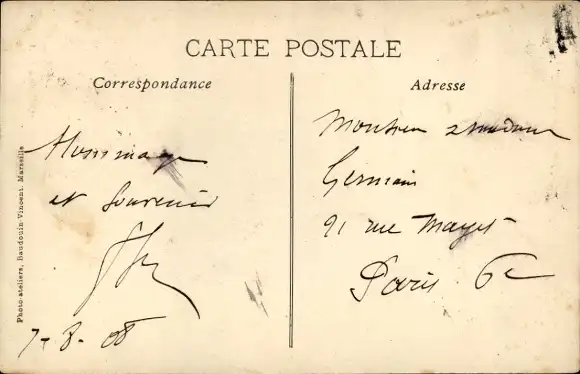 CARTE POSTALE
Correspondance
Adresse
Hommage
et souvenir
7-8-08
Monsieur & madame
Germain
21 rue Mayet
Paris. 6e
Photo-ateliers, Baudouin-Vincent, Marseille